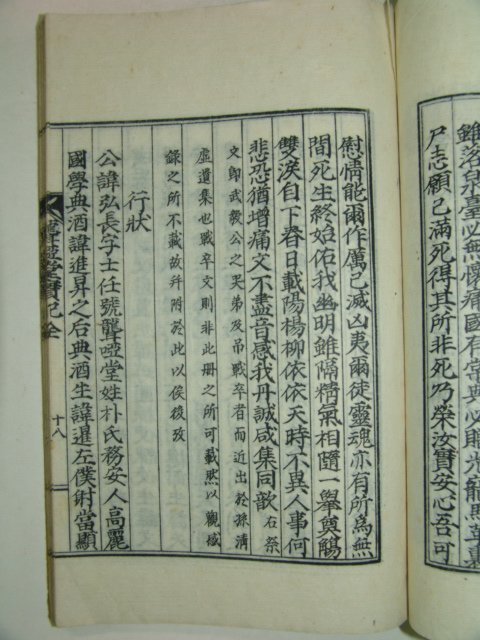 雖落泉臺必無懷痛國有常典必賜光龍馬革裹
尸志願已滿死得其所非死乃榮汝實安心吾可
慰情能爾作厲已滅凶夷爾徒靈魂亦有所爲無
間死生終始佑我幽明雖隔精氣相隨一擧奠觴
雙淚自下春日載陽楊柳依依天時不異人事何
悲恐猶增痛文不盡音感我丹誠咸集同歆 右祭
文卽武毅公之哭弟及吊戰卒者而近出於孫淸
虛遺集也戰卒文則非此冊之所可載然以觀感
錄之所不載故幷附於此以俟後攷
行狀
公諱弘長字士任號聾啞堂姓朴氏務安人高麗
國學典酒諱進昇之后典酒生諱暹左僕射當顯
聾啞堂實紀全 十八